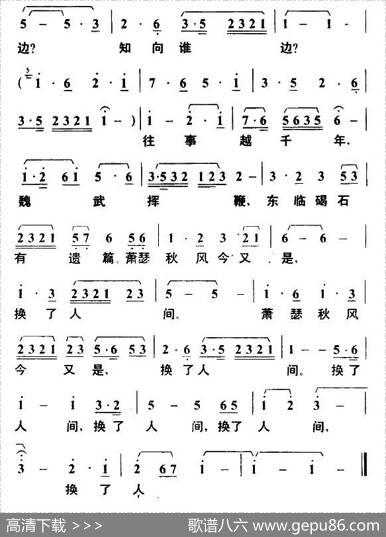 5 — 5·3 | 6 2 | 3·5 2321 | 1 — 1 — |
边? 知向谁 边?
( 1·6 2·1 | 7 6 5·1 | 3·5 6·1 |
3·5 2321 1 — ) | 1 — 2·1 | 7·6 5635 6 — |
往 事 越 千 年,
1·2 61 5·6 | 3·532 123 | 2 — · 3 | 2 3 2 53 |
魏 武 挥 鞭,东临碣石
2321 57 6 56 | 1·2 3 21 | 6 — 6 — |
有 遗 篇.萧瑟 秋 风今又 是,
1·3 2321 23 | 5 — 5 — | 6 5 6·1 |
换了人 间。 萧瑟秋风
2321 23 5·6 53 | 2·6 3·5 2321 | 1 — — 5·6 |
今 又 是, 换 了人 间。换了
1 — 1 3·2 | 5 — 5 65 | 1 2 3 — |
人 间,换了 人 间,换了 人 间,
3 — 2·1 | 2 67 1 — | 1 — 1 — ‖
换 了 人
高清下载 >>> 歌谱八六 www.gepu86.com